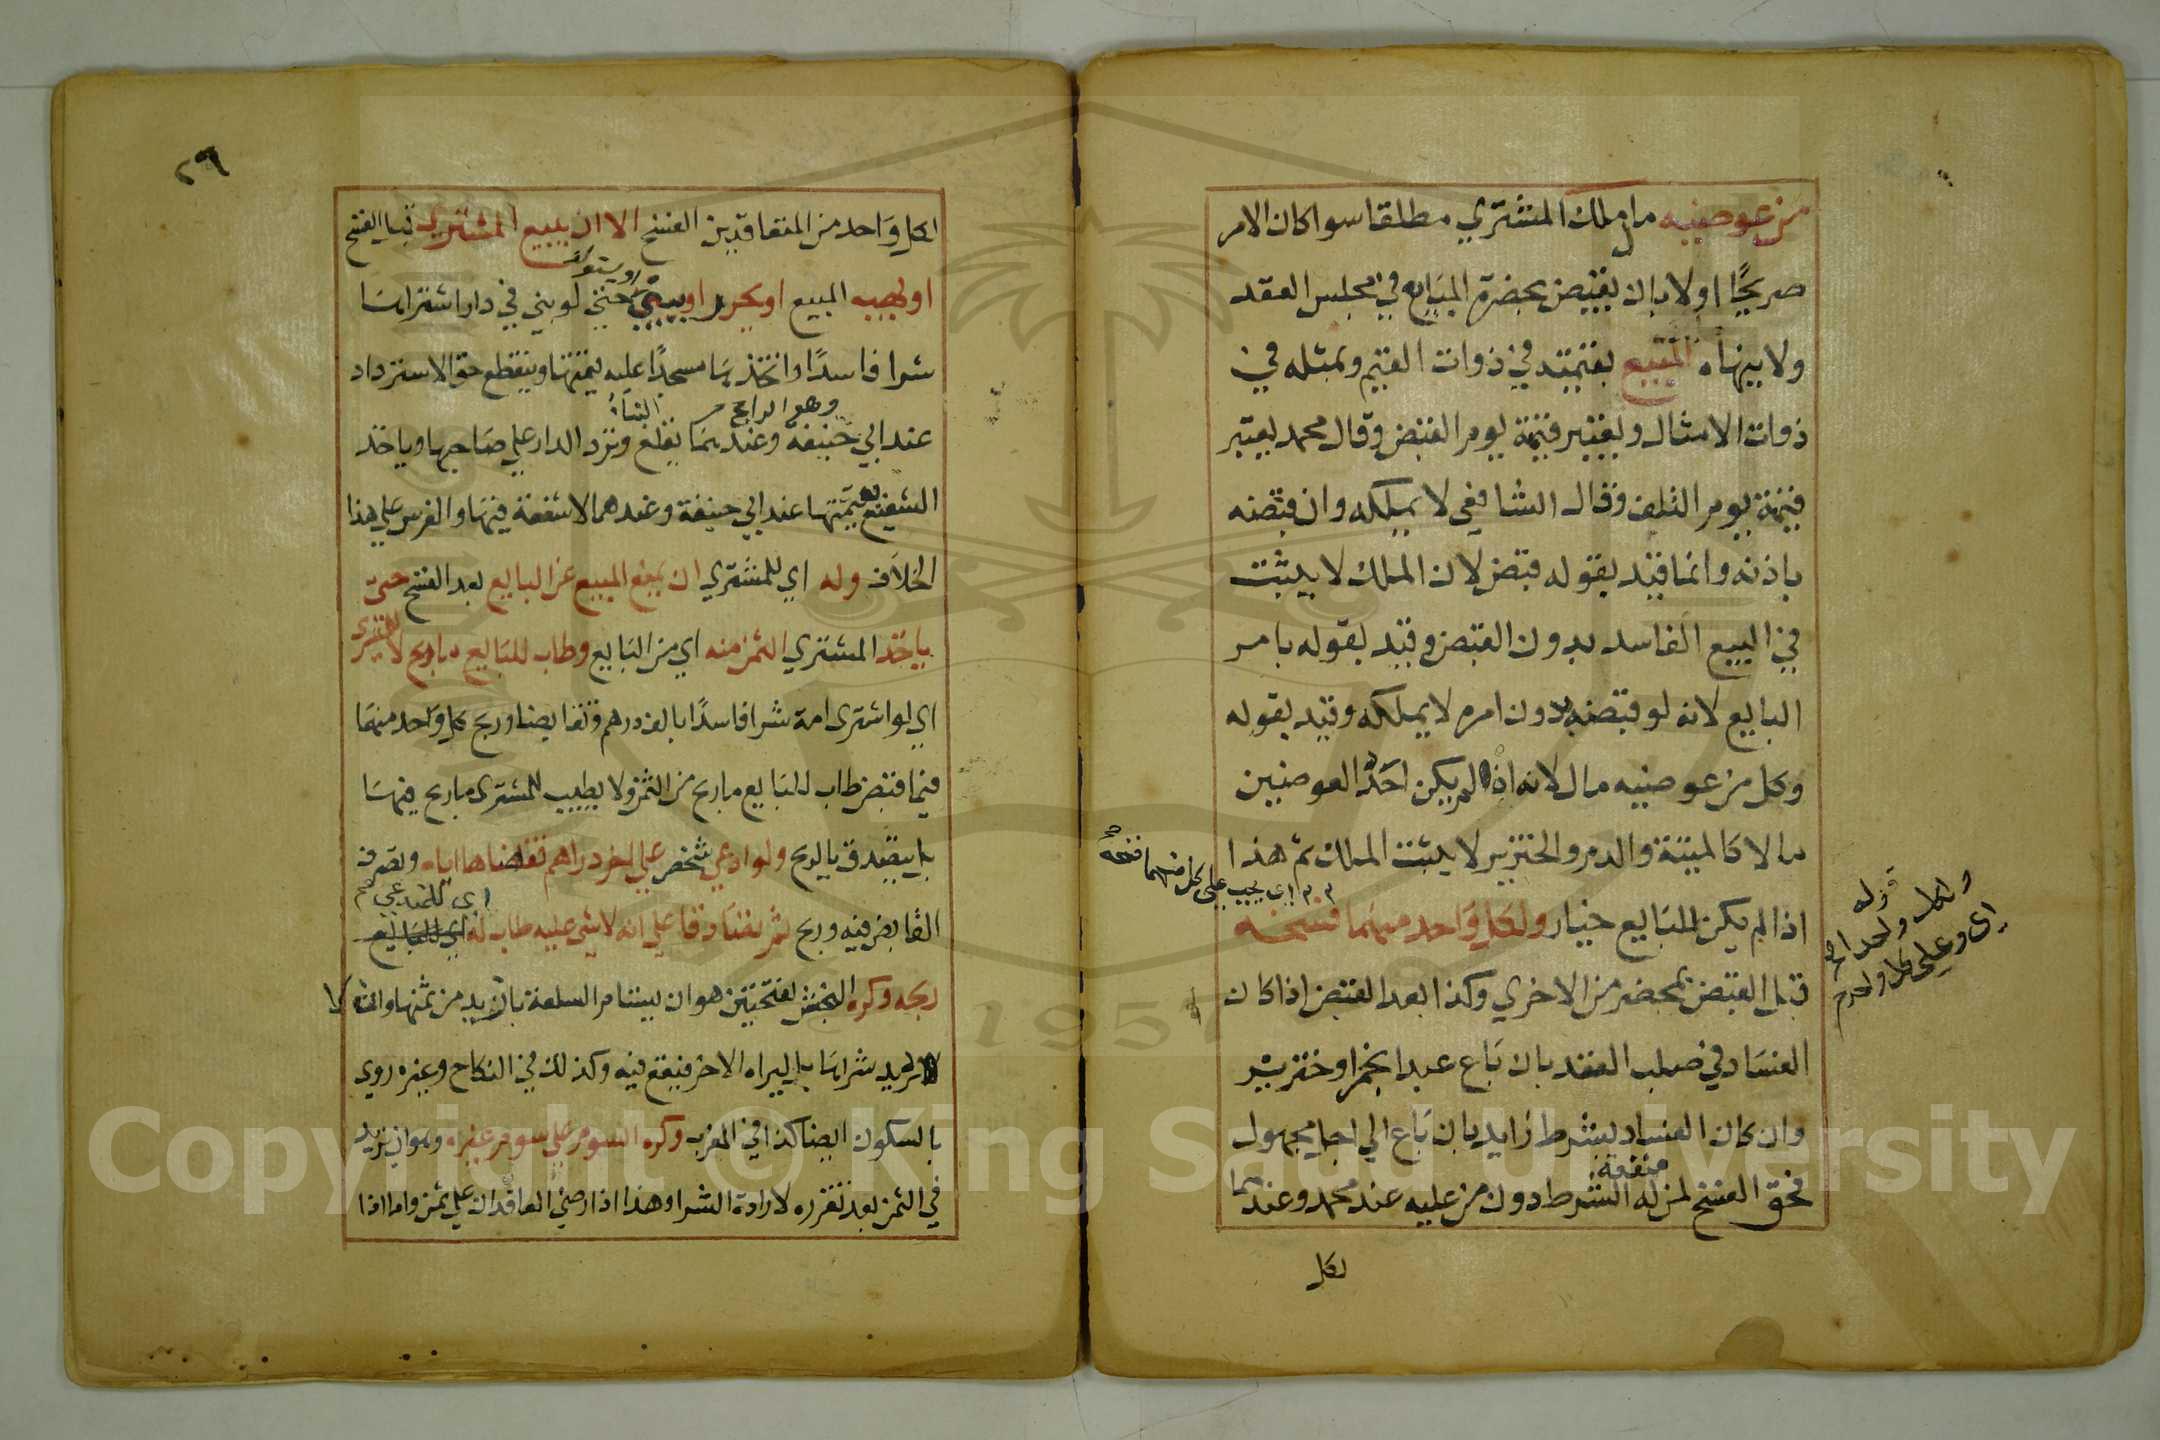 من عوضيه مال ملك المشتري مطلقا سوا كان الامر
صريحًا او لا بان يقبض بحضرة البايع في مجلس العقد
ولا ينهاه المبيع بقيمته في ذوات القيم وبمثله في
ذوات الامثال ويعتبر قيمة يوم القبض وقال محمد يعتبر
قيمة يوم التلف وقال الشافعي لا يملكه وان قبضه
باذنه وانما قيد بقوله قبض لان الملك لا يثبت
في البيع الفاسد بدون القبض وقيد بقوله بامر
البايع لانه لو قبضه بدون امره لا يملكه وقيد بقوله
وكل من عوضيه مال لانه اذا لم يكن احد العوضين
مالا كالميتة والدم والخنزير لا يثبت الملك ثم هذا
اي يجب على كل منهما فسخه
اذا لم يكن للبايع خيار ولكل واحد منهما فسخه
قوله
ولكل واحد الخ
اي وعلى كل واحد
قبل القبض بمحضر من الاخري وكذا بعد القبض اذا كان
الفساد في صلب العقد بان باع عبدا بخمر او خنزير
وان كان الفساد بشرط زايد بان باع الي اجل مجهول
منفعة
فحق الفسخ لمن له الشرط دون من عليه عند محمد وعندهما
لكل
٢٦
لكل واحد من المتعاقدين الفسخ الا ان يبيع المشتري قبل الفسخ
او يهبه المبيع او يحرر او يبني حتي لو بني في دار اشتراها
شرا فاسدًا او اتخذها مسجدًا عليه قيمتها وينقطع حق الاسترداد
وهو الراجح البناء
عند ابي حنيفة وعندهما يقلع وترد الدار علي صاحبها وياخذ
الشفيع بقيمتها عند ابي حنيفة وعندهما لا شفعة فيها والغرس علي هذا
الخلاف وله اي للمشتري ان يمنع المبيع عن البايع بعد الفسخ حتي
ياخذ المشتري الثمن منه اي من البايع وطاب للبايع ما ربح لا للمشتري
اي لو اشترى امة شرا فاسدًا بالف درهم وتقابضا وربح كل واحد منهما
فيما قبض طاب للبايع ما ربح من الثمن ولا يطيب للمشتري ما ربح فيها
بل يتصدق بالربح ولو ادعي شخص علي اخر دراهم فقضاها اياه وتصرف
اي للمدعي
القابض فيه وربح ثم تصادقا علي انه لا شي عليه طاب له اي للبايع
ربحه وكره النجش بفتحتين هو ان يستام السلعة بازيد من ثمنها وانه
لا يريد شراها بل ليراه الاخر فيقع فيه وكذلك في النكاح وغيره روي
بالسكون ايضا كذا في المغرب وكره السوم علي سوم غيره وهو ان يزيد
في الثمن بعد تقرره لارادة الشرا وهذا اذا رضي العاقدان علي ثمن واما اذا
Copyright © King Saud University
1957